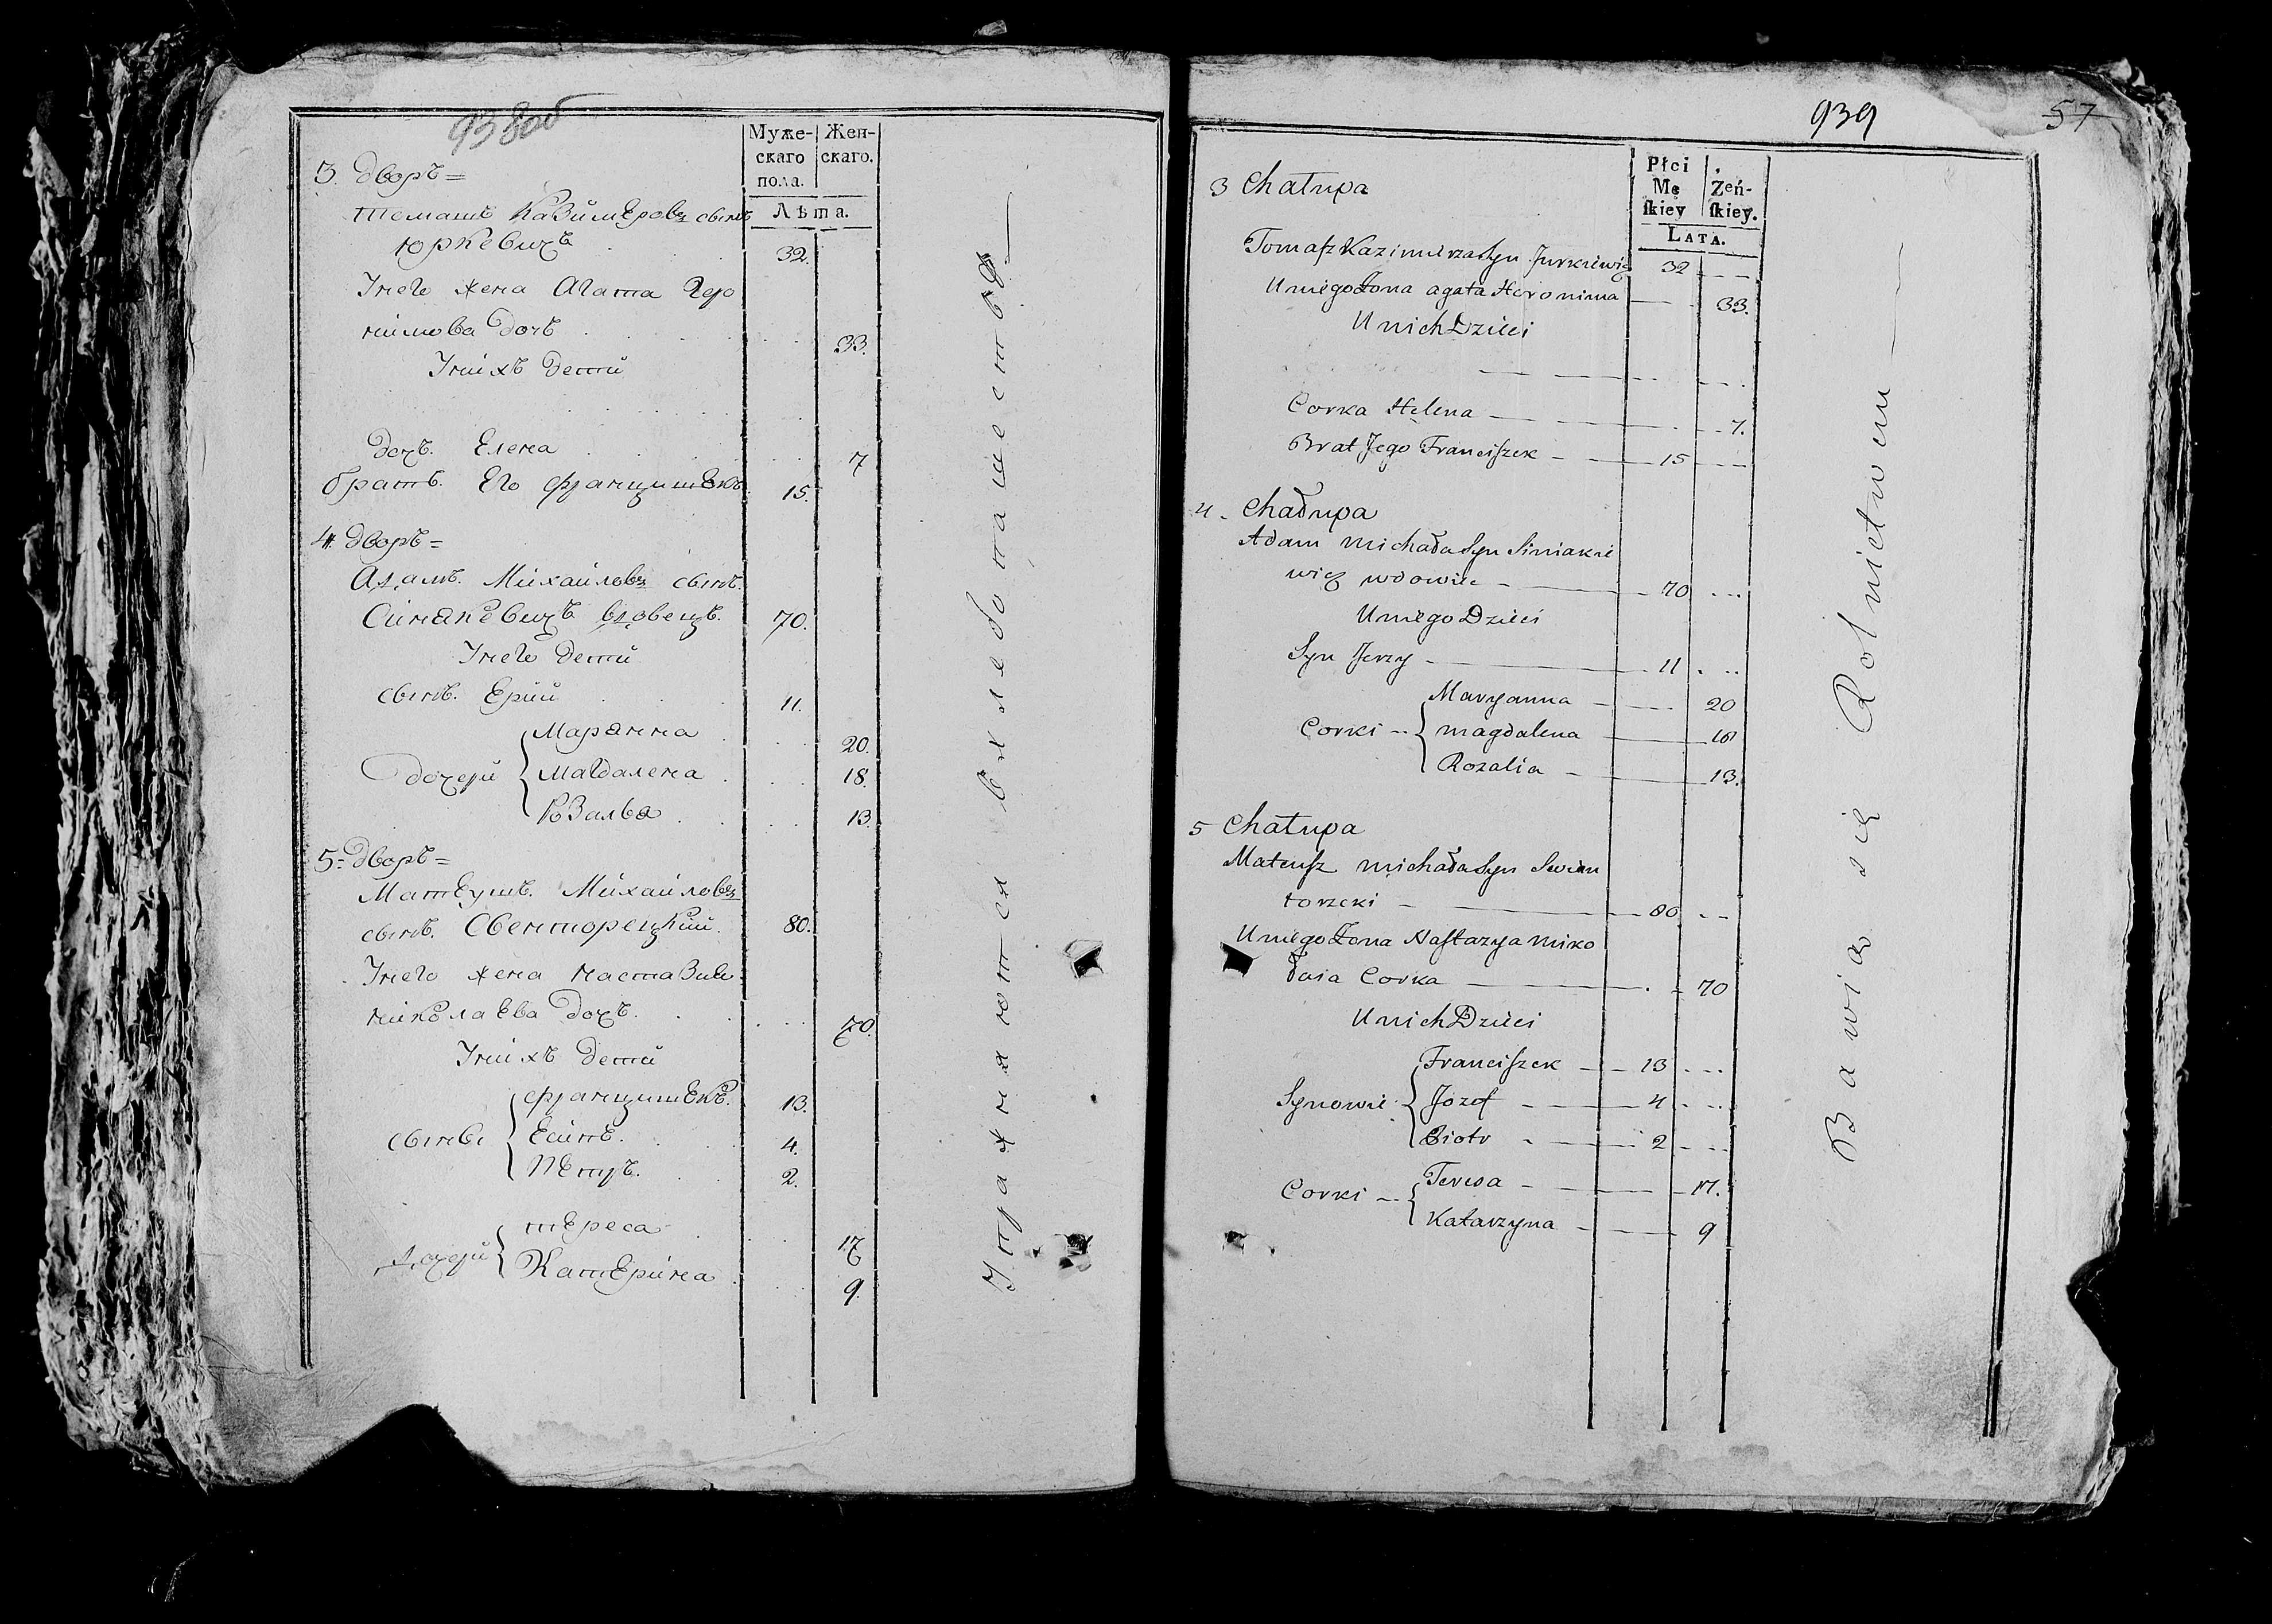 938об
Муже- Жен-
скаго скаго.
пола.
Лѣта.
3. Дворъ =
Томашъ Казимѣровъ сынъ
Юркевичъ 32.
Унего жена Агата Геро
нимова дочь 33.
Унихъ дети
дочь. Елена 7
братъ. Его Францишекъ 15.
4. Дворъ =
Адамъ. Михайловъ сынъ.
Синякевичъ вдовецъ. 70.
Унего дети
сынъ. Ерии 11.
Марянна 20.
дочери Магдалена 18.
Розалья 13.
5 = Дворъ =
Матеушъ. Михайловъ
сынъ. Свенторецкий. 80.
Унего жена Настазия
Николаева дочь. 70.
Унихъ дети
Францишекъ. 13.
сынъве Есипъ. 4.
Петръ. 2.
Тереса 17
дочери Катерина 9.
Упражняются вхлебопашествѣ
939
57
Płci
Mę Żeń-
ſkiey ſkiey.
LATA.
3 Chałupa
Tomaſz Kazimierza Syn Jurkiewicz 32
U niego Żona agata Heronima 33.
U nich Dzieci
Corka Helena 7.
Brat Jego Franciſzek 15
4. Chałupa
Adam Michała Syn Siniakie
wicz wdowiec 70
U niego Dzieci
Syn Jerzy 11
Maryanna 20
Corki magdalena 18
Rozalia 13.
5 Chałupa
Mateuſz michała Syn Swien
torzcki 80
U niego Żona Naſtazya Miko
łaia Corka 70
U nich Dzieci
Franciſzek 13
Synowie Jozef 4
Piotr 2
Teresa 17.
Corki Katarzyna 9
Bawią się Rolnictwem